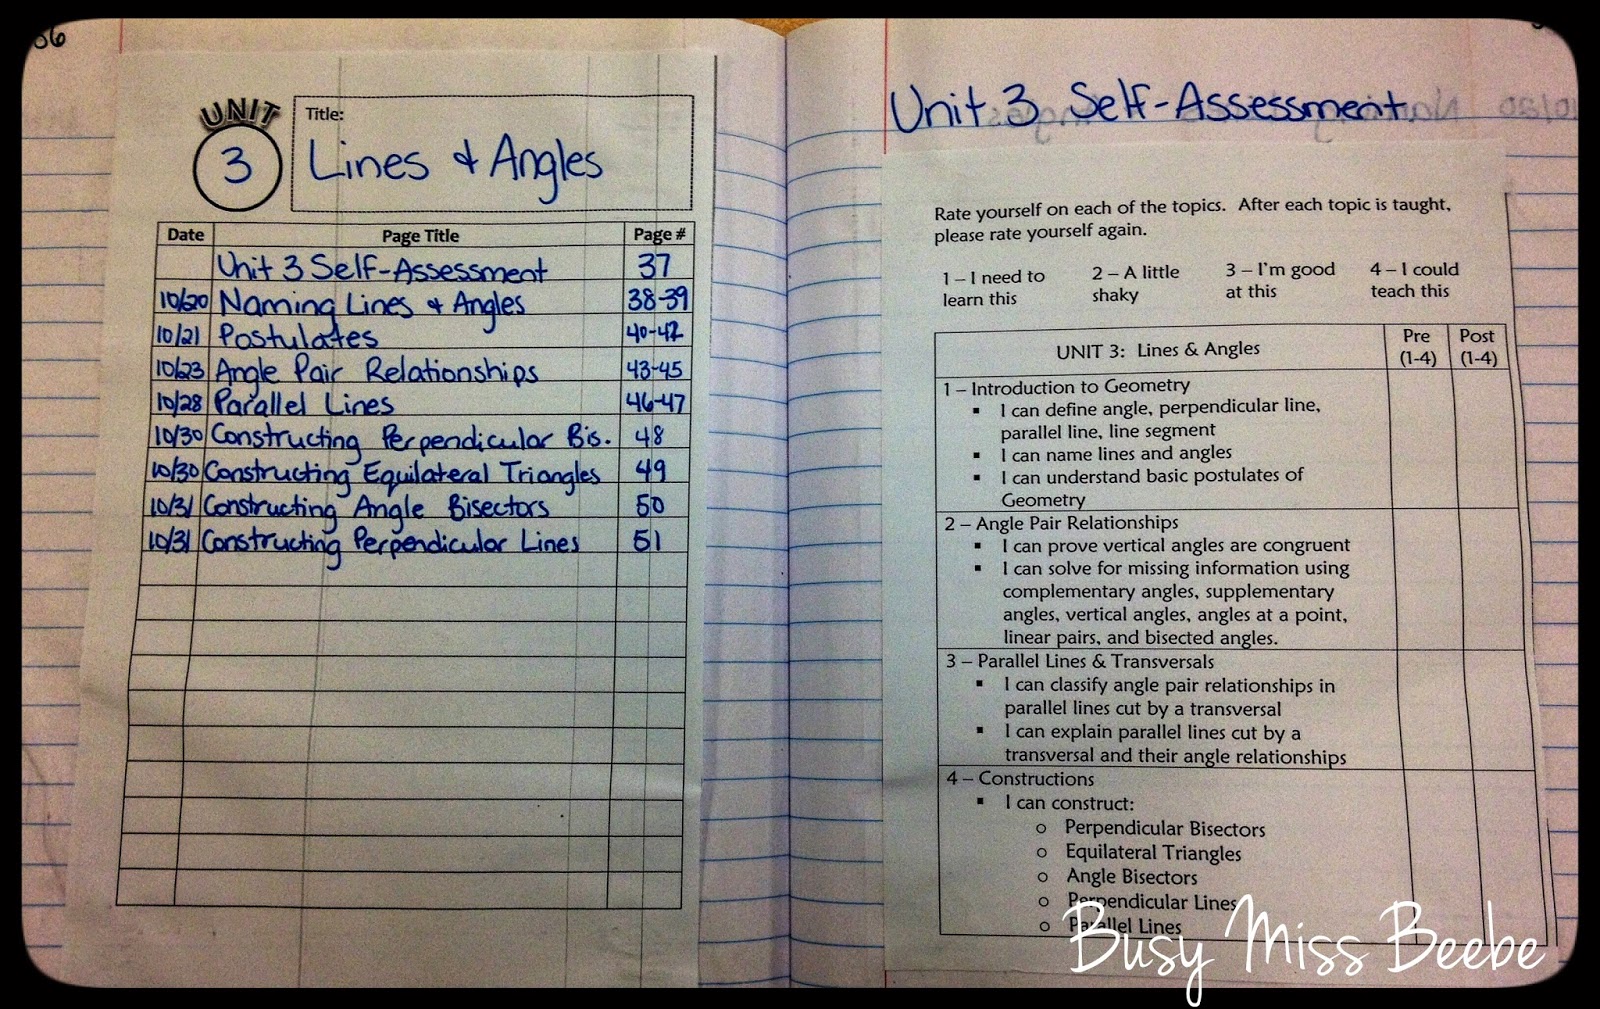 36
UNIT
3
Title:
Lines & Angles
Date Page Title Page #
Unit 3 Self-Assessment 37
10/20 Naming Lines & Angles 38-39
10/21 Postulates 40-42
10/23 Angle Pair Relationships 43-45
10/28 Parallel Lines 46-47
10/30 Constructing Perpendicular Bis. 48
10/30 Constructing Equilateral Triangles 49
10/31 Constructing Angle Bisectors 50
10/31 Constructing Perpendicular Lines 51
Unit 3 Self-Assessment
Rate yourself on each of the topics. After each topic is taught,
please rate yourself again.
1 – I need to learn this
2 – A little shaky
3 – I'm good at this
4 – I could teach this
UNIT 3: Lines & Angles Pre (1-4) Post (1-4)
1 – Introduction to Geometry
▪ I can define angle, perpendicular line,
parallel line, line segment
▪ I can name lines and angles
▪ I can understand basic postulates of
Geometry
2 – Angle Pair Relationships
▪ I can prove vertical angles are congruent
▪ I can solve for missing information using
complementary angles, supplementary
angles, vertical angles, angles at a point,
linear pairs, and bisected angles.
3 – Parallel Lines & Transversals
▪ I can classify angle pair relationships in
parallel lines cut by a transversal
▪ I can explain parallel lines cut by a
transversal and their angle relationships
4 – Constructions
▪ I can construct:
o Perpendicular Bisectors
o Equilateral Triangles
o Angle Bisectors
o Perpendicular Lines
o Parallel Lines
Busy Miss Beebe